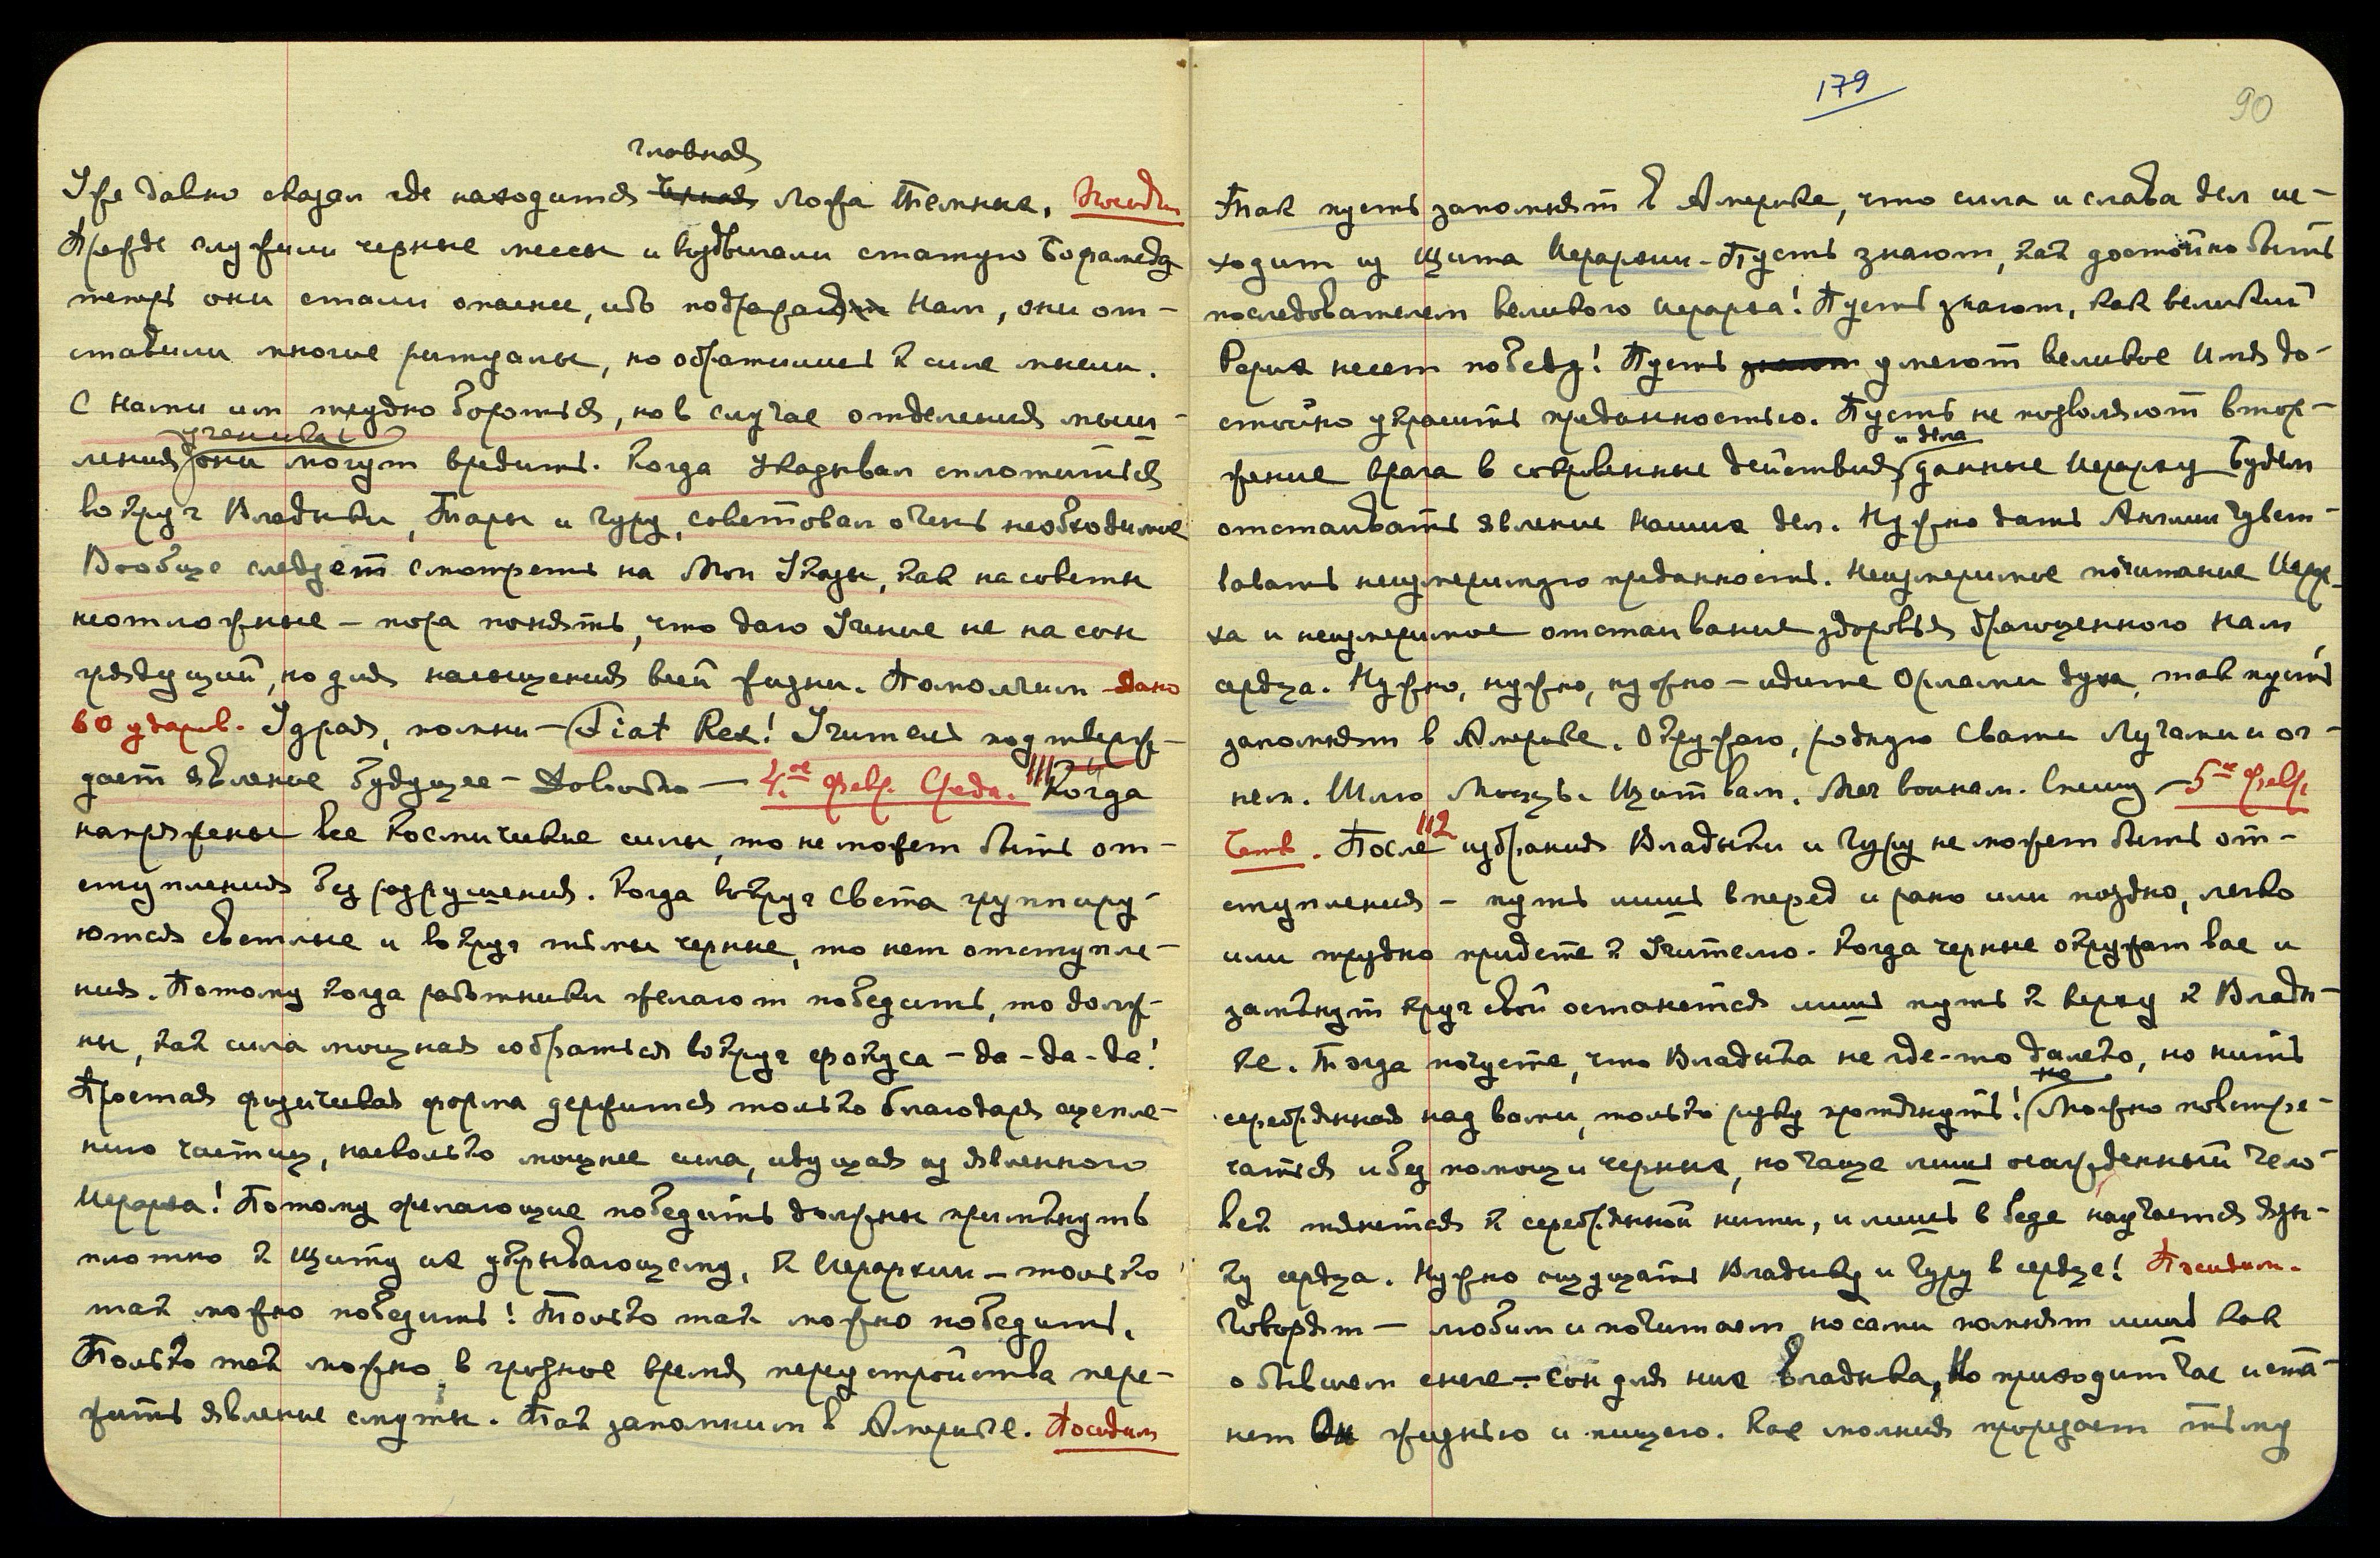 главная
Уже давно сказал где находится Черная ложа темных. Посидим
Прежде служили черные мессы и воздвигали статую Бафамеда
теперь они стали опаснее, ибо подражая Нам, они от-
ставили многие ритуалы, но обратились к силе мысли.
С Нами им трудно бороться, но в случае отделения мыш-
ученики
ления они могут вредить. Когда Указывал сплотиться
вокруг Владыки, Тары и Гуру, советовал очень необходимое
Вообще следует смотреть на Мои Указы, как на советы
неотложные – пора понять, что даю Учение не на сон
грядущий, но для насыщения всей жизни. Помолчим – дано
60 ударов. Удрая, помни – Fiat Rex! Учитель подтверж-
дает явление будущее – Довольно – 4-ое февр. Среда. 111 Когда
напряжены все Космические силы, то не может быть от-
ступления без разрушения. Когда вокруг Света группиру-
ются светлые и вокруг тьмы черные, то нет отступле-
ния. Потому когда работники желают победить, то долж-
ны, как сила мощная собраться вокруг фокуса – да – да – да!
Простая физическая форма держится только благодаря сцепле-
нию частиц, насколько мощнее сила, идущая из явленного
Иерарха! Потому желающие победить должны примкнуть
плотно к Щиту их укрывающему, к Иерархии – только
так можно победить! Только так можно победить.
Только так можно в грозное время переустройства пере-
жить явление смуты. Так запомним в Америке. Посидим
179
90
Так пусть запомнят в Америке, что сила и слава дел ис-
ходит из Щита Иерархии – Пусть знают, как достойно быть
последователем великого Иерарха! Пусть знают, как великий
Рерих несет победу! Пусть знают умеют великое Имя до-
стойно украсить преданностью. Пусть не позволяют втор-
и дела
жение врага в сокровенные действия, данные Иерарху Будем
отстаивать явление Наших дел. Нужно дать Англии чувст-
вовать неизмеримую преданность. Неизмеримое почитание Иерар-
ха и неизмеримое отстаивание здоровья драгоценного Нам
сердца. Нужно, нужно, нужно – идите Орлами духа, так пусть
запомнят в Америке. Окружаю, родную Свати Лучами и ог-
нем. Шлю Мощь. Щит вам. Меч воинам. Спешу – 5-ое февр.
Четв. 112 После избрания Владыки и Гуру не может быть от-
ступления – путь лишь вперед и рано или поздно, легко
или трудно придете к Учителю. Когда черные окружат вас и
замкнут круг свой останется лишь путь к верху к Влады-
ке. Тогда почуете, что Владыка не где-то далеко, но нить
но
серебрянная над вами, только руку протянуть! Можно повстре-
чаться и без помощи черных, но чаще лишь осажденный чело-
век тянется к серебрянной нити, и лишь в беде научается язы-
ку сердца. Нужно ощущать Владыку и Гуру в сердце! Посидим.
Говорят – любим и почитаем, но сами помнят лишь как
о бывшем сне. – Сон для них Владыка, Но приходит час и ста-
нет Он жизнью и пищею. Как молния прорезает тьму